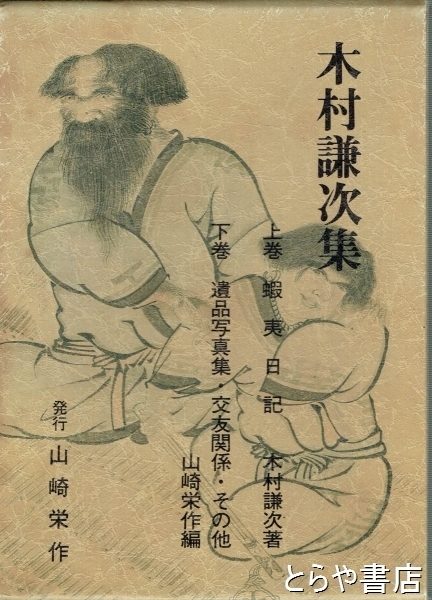 木村謙次集
上巻 蝦夷日記 木村謙次著
下巻 遺品写真集・交友関係・その他
山崎栄作編
発行 山崎栄作
とらや書店